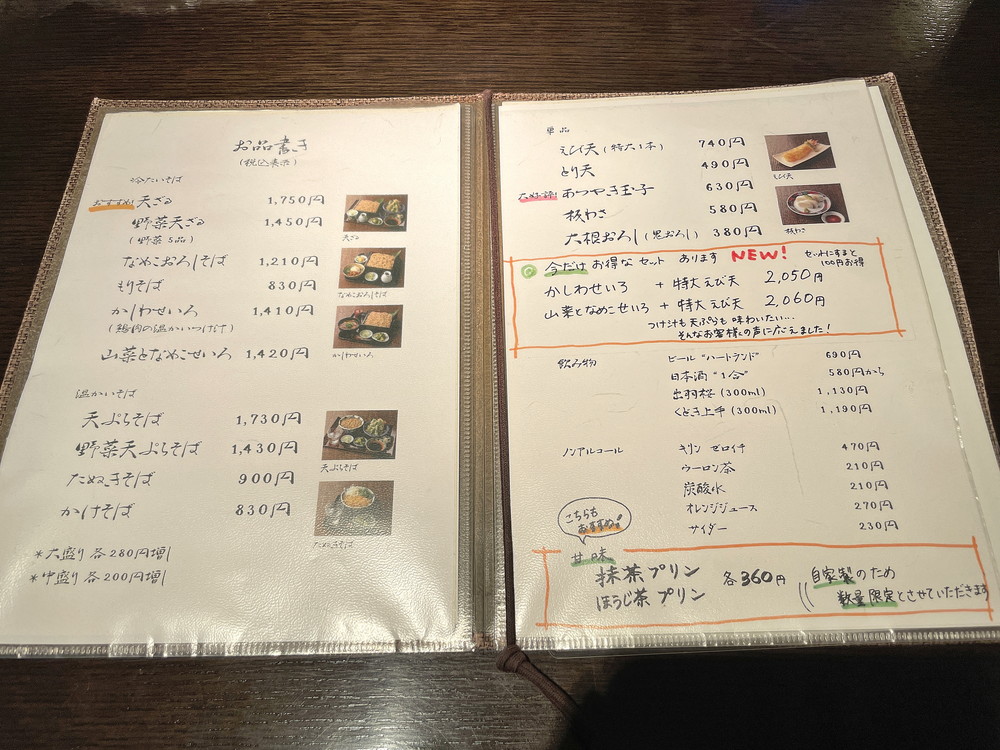 お品書き
(税込表示)
冷たいそば
おすすめ! 天ざる 1,750円
野菜天ざる 1,450円
(野菜5品)
なめこおろしそば 1,210円
もりそば 830円
かしわせいろ 1,410円
(鶏肉の温かいつけ汁)
山菜となめこせいろ 1,420円
天ざる
なめこおろしそば
かしわせいろ
温かいそば
天ぷらそば 1,730円
野菜天ぷらそば 1,430円
たぬきそば 900円
かけそば 830円
天ぷらそば
たぬきそば
*大盛り各280円増し
*中盛り各200円増し
単品
えび天(特大1本) 740円
とり天 490円
大好評! あつやき玉子 630円
板わさ 580円
大根おろし(鬼おろし) 380円
えび天
板わさ
今だけお得なセット あります NEW! せいろにすると
100円お得
かしわせいろ + 特大えび天 2,050円
山菜となめこせいろ + 特大えび天 2,060円
つけ汁も天ぷらも味わいたい…
そんなお客様の声に応えました!
飲み物
ビール "ハートランド" 690円
日本酒 "1合" 580円から
出羽桜(300ml) 1,130円
くどき上手(300ml) 1,190円
ノンアルコール キリン ゼロイチ 470円
ウーロン茶 210円
炭酸水 210円
オレンジジュース 270円
サイダー 230円
こちらも
おすすめ!
甘味
抹茶プリン
ほうじ茶プリン
各360円
自家製のため
数量限定とさせていただきます